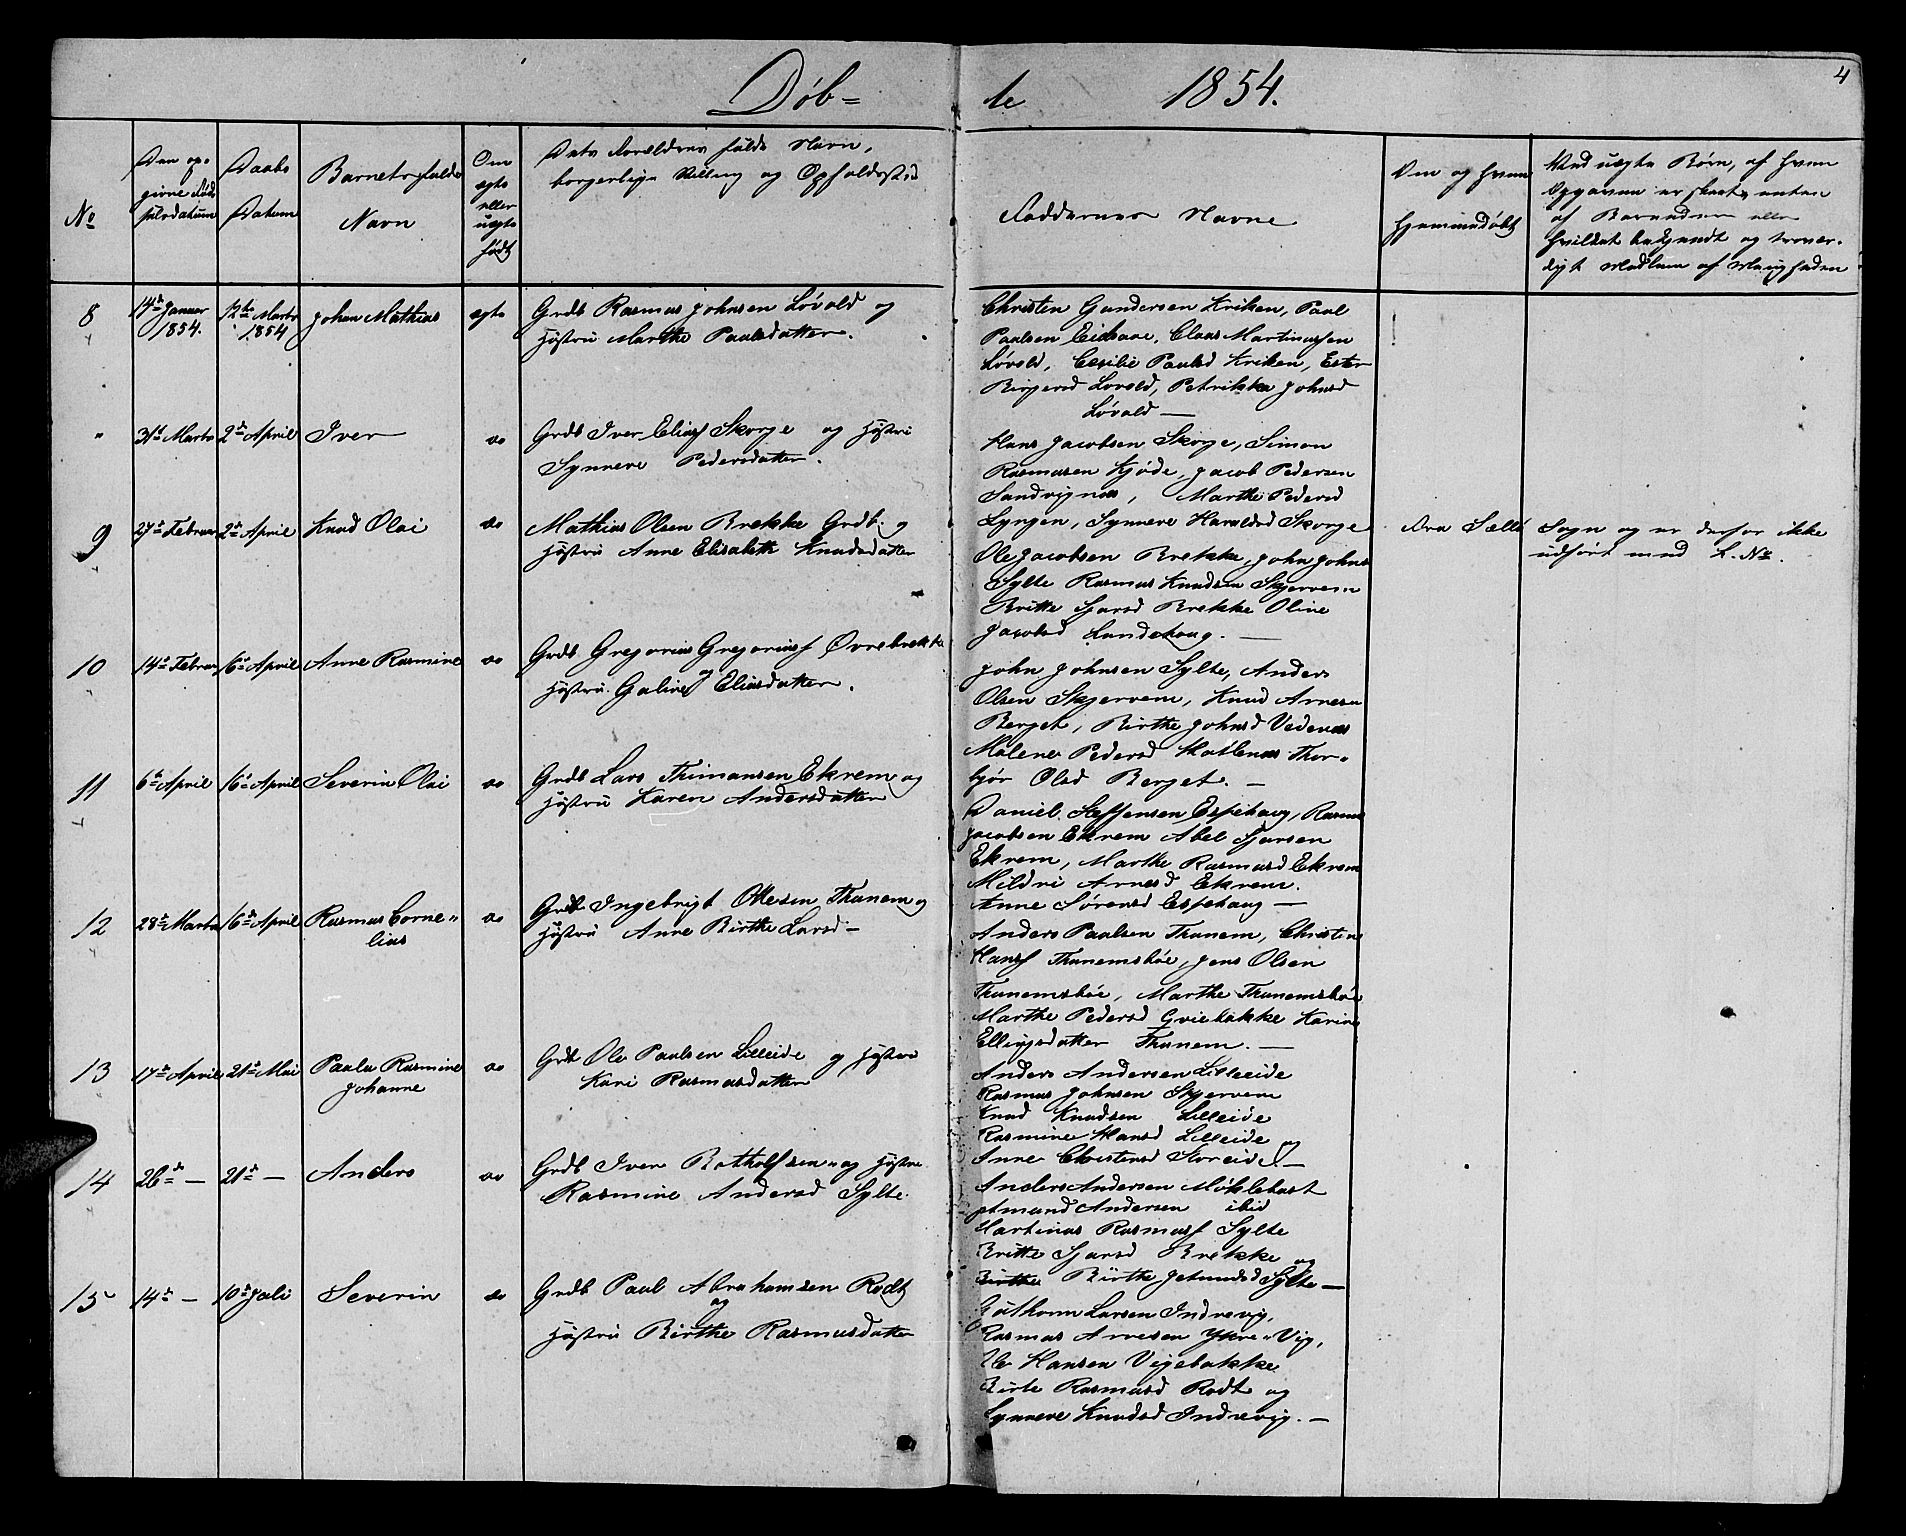 Døb=
te
1854.
4
No
Den op-
givne Fød-
selsdatum
Daabs
Datum
Barnets fulde
Navn
Om
ægte
eller
uægte
født
Dets Forældres fulde Navn,
borgerlige Stilling og Opholdssted
Faddernes Navne
Om og hvem
hjemmedøbt
Ved uægte Børn, af hvem
Opgaven er skeet, enten
af Barnets
hvilket bekjendt og trovær-
digt Medlem af Menigheden
8
14de Januar
1854.
12te Marts
1854
Johan Mathias
ægte
Grdb Rasmus Johnsen Løvold og
Hustru Marthe Paulsdatter.
Christen Gundersen Kriken, Paul
Paulsen Eidsaae, Claus Martinussen
Løvold, Cesilie Paulsd Kriken, Ester
Birgersd Løvold, Petrikke Johnsd
Løvold —
"
31d Marts
2d April
Iver
do
Grdb Iver Eliasf Skorge og Hustru
Synneve Pedersdatter.
Hans Jacobsen Skorge, Simon
Rasmusen Kjøde, Jacob Pedersen
Sandvignæs, Marthe Pedersd
Lyngen, Synneve Haraldsd Skorge
Fra Sælle Sogn og er derfor ikke
udført med L. No.
9
27de Februar
2d April
Knud Olai
do
Mathias Olsen Brekke Grdb. og
Hustru Anne Elisabeth Knudsdatter
Ole Jacobsen Brekke, John Johns
Sylte Rasmus Knudsen Skjervem
Britte Sjursd Brekke Oline
Jacobsd Landehoug. —
10
14de Februar
16de April
Anne Rasmine
do
Grdb Gregorius Gregoriusf Øvrebrekke
og
Hustru. Galine Eliasdatter.
John Johnsen Sylte, Anders
Olsen Skjervem, Knud Arnesen
Berget, Birthe Johnsd Vedenæs
Malene Pedersd Hatlenæs Thor-
bjør Olsd Berget. —
11
6te April
16de April
Severin Olai
do
Grdb Lars Thimansen Ekrem og
Hustru Karen Andersdatter
Daniel Steffensen Espehoug, Rasmus
Jacobsen Ekrem Abel Sjursen
Ekrem, Marthe Rasmusd Ekrem
Mildri Arnesd Ekrem.
Anne Sørensd Espehoug —
12
28de Marts
16de April
Rasmus Corne-
lius
do
Grdb Ingebrigt Ottesen Thunem og
Hustru Anne Birthe Larsd —
Anders Paulsen Thunem, Christen
Hansf Thunemsbøe, Jens Olsen
Thunemsbøe, Marthe Thunemsbøe
Marthe Pedersd Gviebakke Karine
Ellingsdatter Thunem. —
13
17de April
21de Mai
Paula Rasmine
Johanne
do
Grdb Ole Paulsen Lilleide og Hustru
Kari Rasmusdatter
Anders Andersen Lilleeide
Rasmus Johnsen Skjervem
Knud Knudsen Lilleide
Rasmine Hansd Lilleide og
Anne Christensd Storeide —
14
26de —
21de —
Anders
do
Grdb Iver Botholfsen og Hustru
Rasmine Andersd Sylte
Anders Andersen Møklebust
Amund Andersen ibid
Martinus Rasmusf Sylte
Britte Sjursd Brekke og
Birthe Birthe Jetmundsd Sylte —
15
14de —
10de Juli
Severin
do
Grdb Paul Abrahamsen Rødt
og
Hustru Birthe Rasmusdatter
Guthorm Larsen Indrevig,
Rasmus Arnesen Ytre-Vig,
Ole Hansen Vigebakke
Birte Rasmusd Rødt og
Synneve Knudsd Indrevig. —